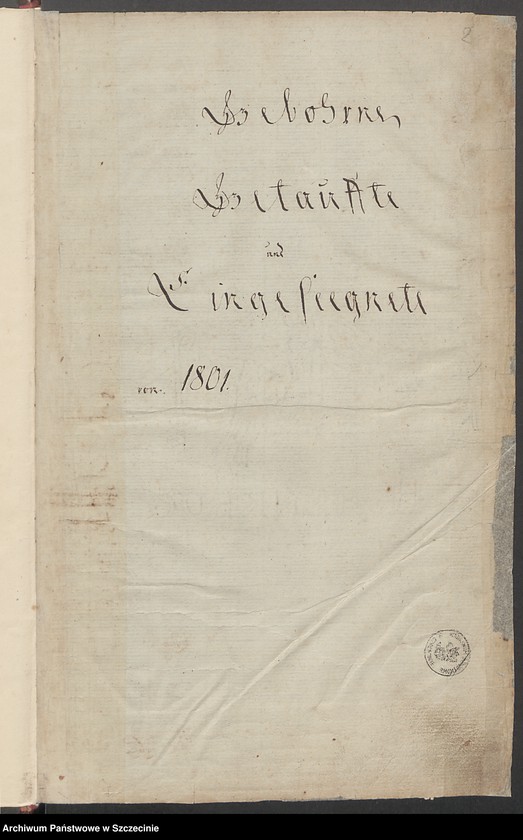 2
Gebohrne,
Getauffte
und
Eingeseegnete
von. 1801.
Archiwum Państwowe w Szczecinie